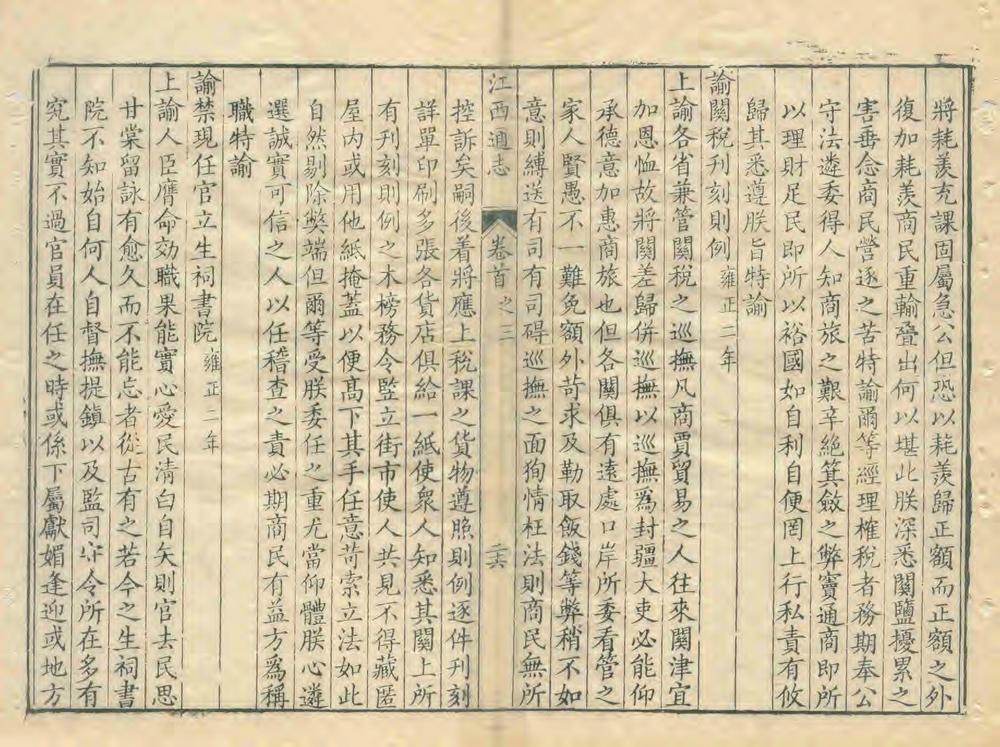 將耗羨充課固屬急公但恐以耗羨歸正額而正額之外
復加耗羨商民重輸疊出何以堪此朕深悉關鹽擾累之
害垂念商民營逐之苦特諭爾等經理榷稅者務期奉公
守法遴委得人知商旅之艱辛絶箕斂之弊竇通商即所
以理財足民即所以裕國如自利自便罔上行私責有攸
歸其悉遵朕旨特諭
諭關稅刊刻則例雍正二年
上諭各省兼管關稅之巡撫凡商賈貿易之人往來關津宜
加恩恤故將關差歸併巡撫以巡撫爲封疆大吏必能仰
承德意加惠商旅也但各關俱有遠處口岸所委看管之
家人賢愚不一難免額外苛求及勒取飯錢等弊稍不如
意則縛送有司有司碍巡撫之面狥情枉法則商民無所
江西通志 卷首之三 二六
控訴矣嗣後着將應上稅課之貨物遵照則例逐件刊刻
詳單印刷多張各貨店俱給一紙使衆人知悉其關上所
有刊刻則例之木榜務令竪立街市使人共見不得藏匿
屋内或用他紙掩蓋以便高下其手任意苛索立法如此
自然剔除獘端但爾等受朕委任之重尤當仰體朕心遴
選誠實可信之人以任稽查之責必期商民有益方爲稱
職特諭
諭禁現任官立生祠書院雍正二年
上諭人臣膺命効職果能實心愛民清白自矢則官去民思
甘棠留詠有愈久而不能忘者從古有之若今之生祠書
院不知始自何人自督撫提鎮以及監司守令所在多有
究其實不過官員在任之時或係下屬獻媚逢迎或地方